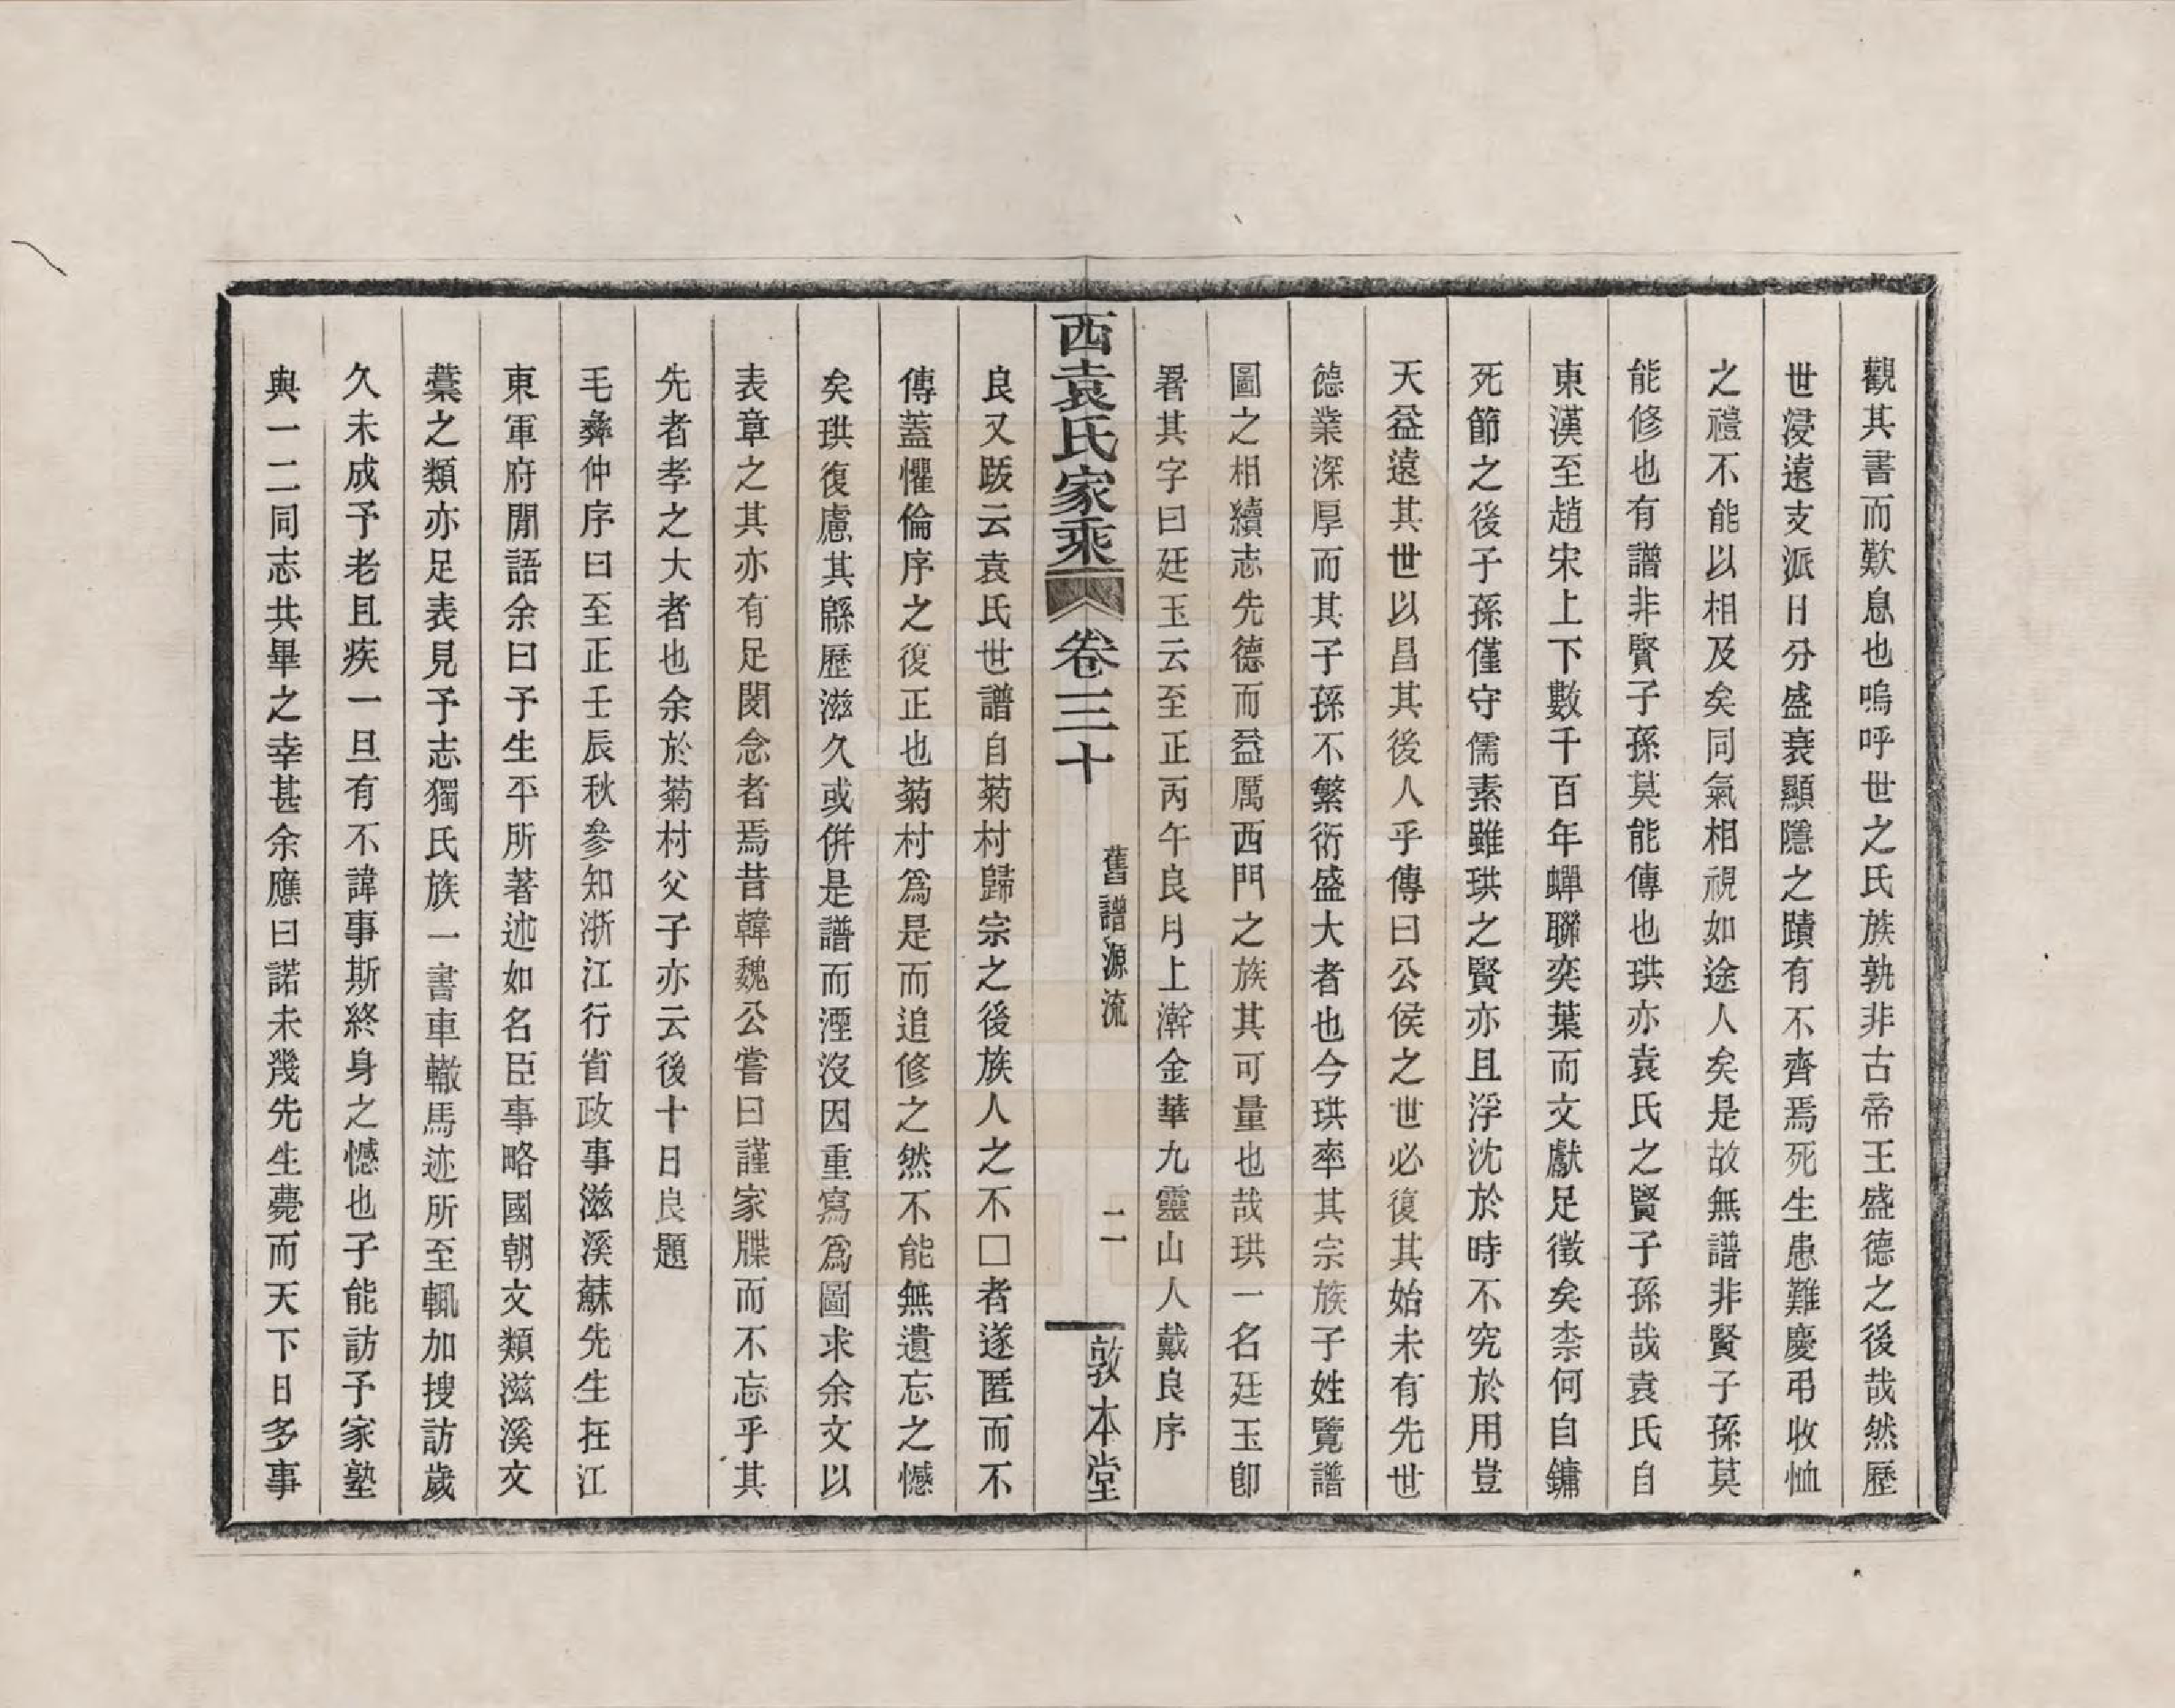 觀其書而歎息也嗚呼世之氏族孰非古帝王盛德之後哉然歷
世浸遠支派日分盛衰顯隱之蹟有不齊焉死生患難慶弔收恤
之禮不能以相及矣同氣相視如途人矣是故無譜非賢子孫莫
能修也有譜非賢子孫莫能傳也珙亦袁氏之賢子孫哉袁氏自
東漢至趙宋上下數千百年蟬聯奕葉而文獻足徵矣柰何自鏞
死節之後子孫僅守儒素雖珙之賢亦且浮沈於時不究於用豈
天益遠其世以昌其後人乎傳曰公侯之世必復其始未有先世
德業深厚而其子孫不繁衍盛大者也今珙率其宗族子姓覽譜
圖之相續志先德而益厲西門之族其可量也哉珙一名廷玉卽
署其字曰廷玉云至正丙午良月上澣金華九靈山人戴良序
西袁氏家乘 卷三十 舊譜源流 二 敦本堂
良又跋云袁氏世譜自菊村歸宗之後族人之不□者遂匿而不
傳蓋懼倫序之復正也菊村爲是而追修之然不能無遺忘之憾
矣珙復慮其緜歷滋久或併是譜而湮沒因重寫爲圖求余文以
表章之其亦有足閔念者焉昔韓魏公嘗曰謹家牒而不忘乎其
先者孝之大者也余於菊村父子亦云後十日良題
毛彝仲序曰至正壬辰秋參知浙江行省政事滋溪蘇先生在江
東軍府閒語余曰予生平所著述如名臣事略國朝文類滋溪文
藁之類亦足表見予志獨氏族一書車轍馬迹所至輒加搜訪歲
久未成予老且疾一旦有不諱事斯終身之憾也子能訪予家塾
與一二同志共畢之幸甚余應曰諾未幾先生薨而天下日多事